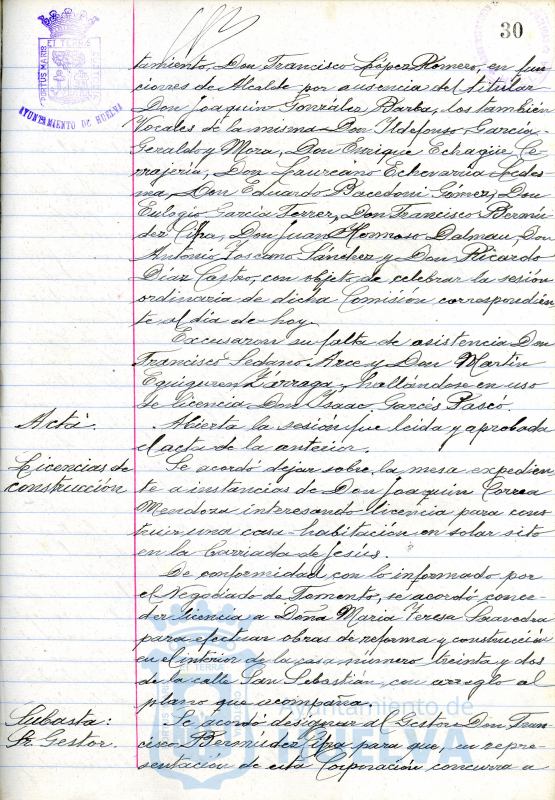 30
PORTUS MARIS ET TERRAE CUSTODIA
AYUNTAMIENTO DE HUELVA
tamiento, Don Francisco López Romero, en fun
ciones de Alcalde por ausencia del titular
Don Joaquin González Barba, los también
Vocales de la misma Don Ildefonso García
Geraldo y Mora, Don Enrique Echagüe Ce-
rrajería, Don Laureano Echevarria Ledes-
ma, Don Eduardo Bacedoni Gómez, Don
Eulogio García Ferrer, Don Francisco Bermú-
dez Don Juan Hermoso Dalmau, Don
Antonio Toscano Sánchez y Don Ricardo
Díaz Castro, con objeto de celebrar la sesión
ordinaria de dicha Comisión correspondien
te al día de hoy.
Excusaron su falta de asistencia Don
Francisco Sedano Arce y Don Martín
Eguiguren Lárraga, hallándose en uso
de licencia Don Isaac Garcés Pascó.
Acta.
Abierta la sesión fue leida y aprobada
el acta de la anterior.
Licencias de
construcción
Se acordó dejar sobre la mesa expedien
te a instancias de Don Joaquín Correa
Mendoza interesando licencia para cons
truir una casa-habitación en solar sito
en la Barriada de Jesús.
De conformidad con lo informado por
el Negociado de Fomento, se acordó conce-
der licencia a Doña Maria Teresa Saavedra
para efectuar obras de reforma y construcción
en el interior de la casa número treinta y dos
de la calle San Sebastián, con arreglo al
plano que acompaña.
Subasta:
Sr. Gestor.
Se acordó designar al Gestor Don Fran-
cisco Bermúdez para que, en repre-
sentación de esta Corporación concurra a
Ayuntamiento de
HUELVA